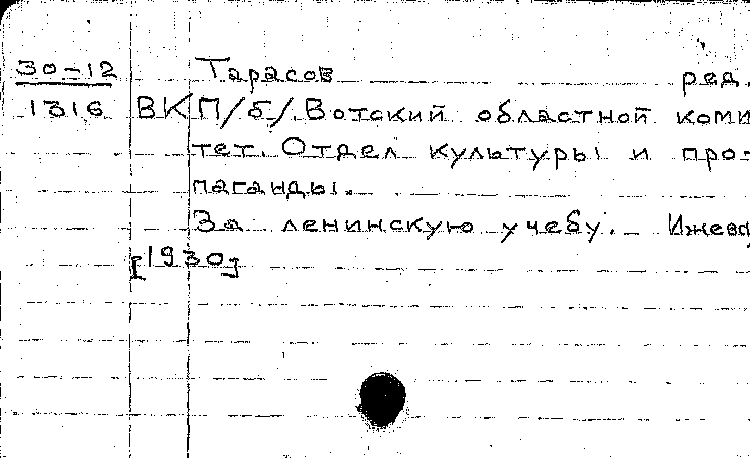 30-12 Тарасов ред.
1316 ВКП/б/. Вотский областной коми
тет. Отдел культуры и про-
паганды.
За ленинскую учебу. Ижевс
[1930]